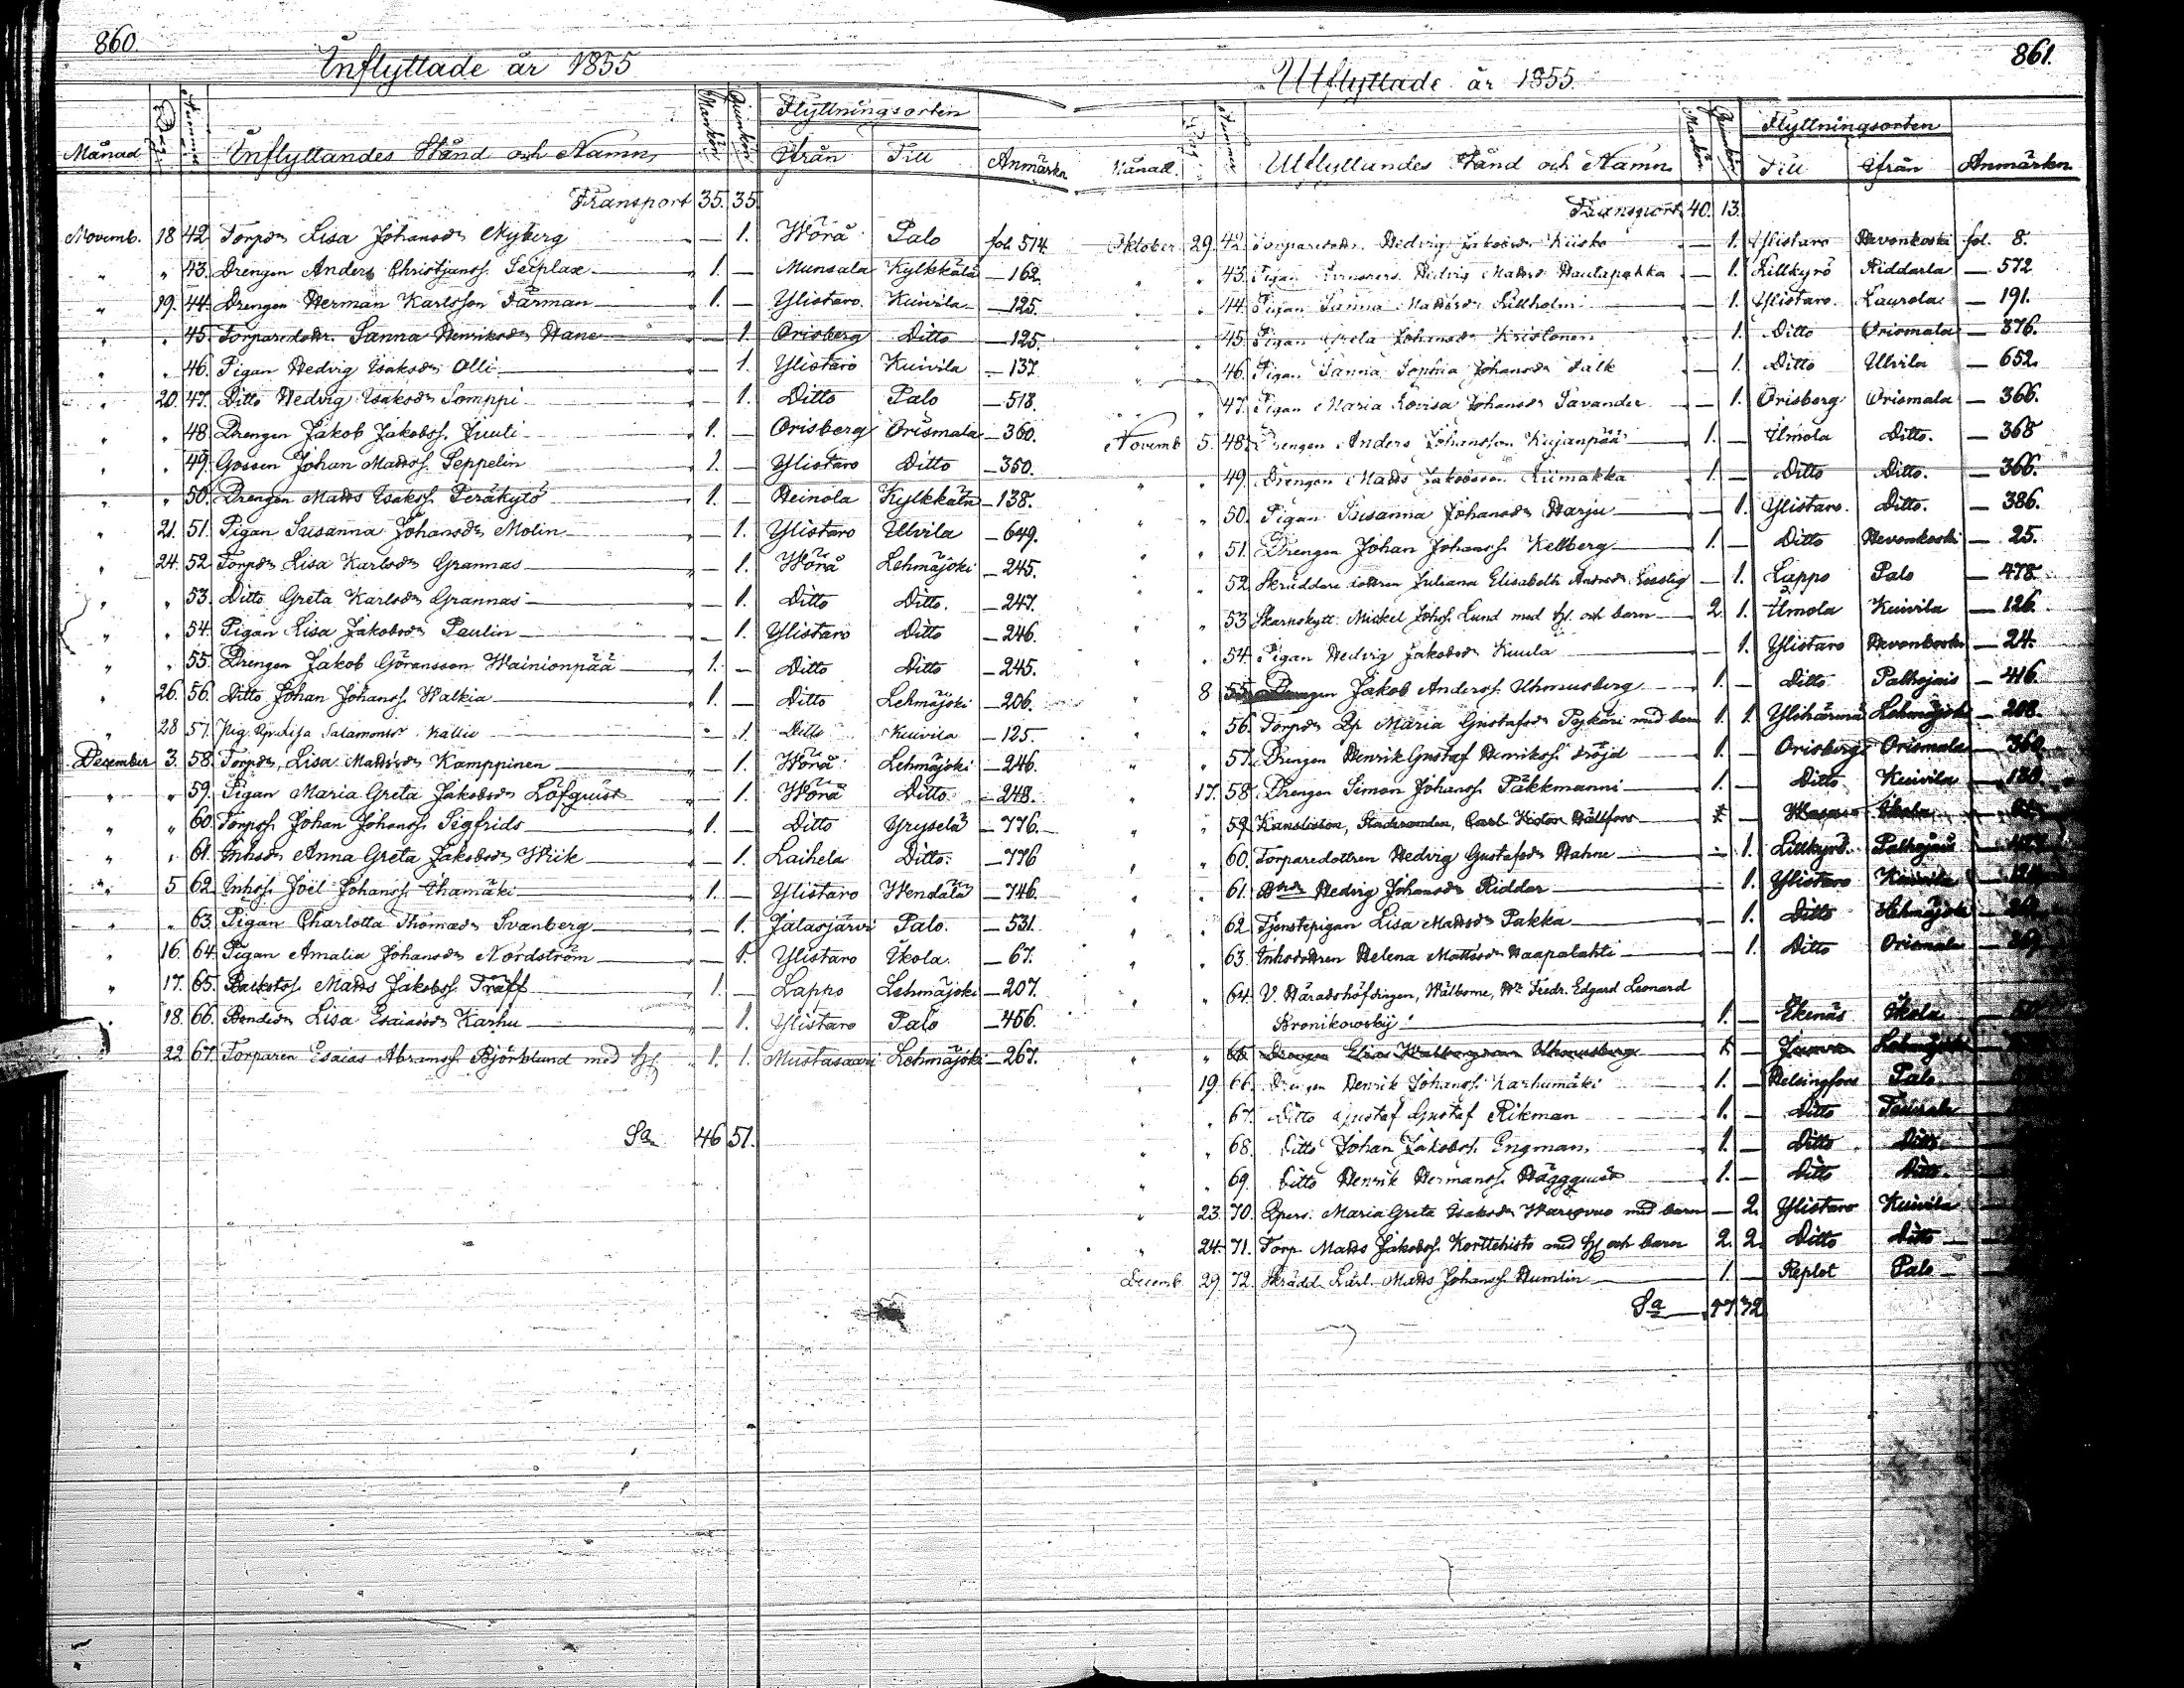 860.
Inflyttade år 1855
Månad Dag Nummer Inflyttandes Stånd och Namn Mankön Qvinkön Flyttningsorten
Ifrån Till Anmärkn
Transport 35. 35.
Novemb. 18 42 Torpdr Lisa Johansdr Nyberg — 1. Wörå Palo fol. 514.
" " 43. Drengen Anders Christjanss. Seiplax 1. — Munsala Kylkkälä — 162.
" 19. 44. Drengen Herman Karlsson Färman 1. — Ylistaro Kuivila — 125.
" " 45. Torparedottr. Sanna Henriksdr Hane — 1. Orisberg Ditto — 125.
" " 46. Pigan Hedvig Isaksdr Olli — 1. Ylistaro Kuivila — 137.
" 20. 47. Ditto Hedvig Isaksdr Somppi — 1. Ditto Palo — 518.
" " 48. Drengen Jakob Jakobss. Juuti 1. — Orisberg Orismala — 360.
" " 49. Gossen Johan Mattss. Seppelin 1. — Ylistaro Ditto — 350.
" " 50. Drengen Matts Isakss. Peräkytö 1. — Heinola Kylkkälä — 138.
" 21. 51. Pigan Susanna Johansdr Molin — 1. Ylistaro Ulvila — 649.
" 24. 52. Torpdr Lisa Karlsdr Grannas — 1. Wörå Lehmäjoki — 245.
" " 53. Ditto Greta Karlsdr Grannas — 1. Ditto Ditto. — 247.
" " 54. Pigan Lisa Jakobsdr Paulin — 1. Ylistaro Ditto — 246.
" " 55. Drengen Jakob Göransson Wainionpää 1. — Ditto Ditto — 245.
" 26. 56. Ditto Johan Johanss. Walkia 1. — Ditto Lehmäjoki — 206.
" 28 57. Pig. Lisa Salamonsdr Kallio — 1. Ditto Kuivila — 125.
December 3. 58. Torpdr Lisa Mattsdr Kamppinen — 1. Wörå Lehmäjoki — 246.
" " 59. Pigan Maria Greta Jakobsdr Löfquist — 1. Wörå Ditto — 248.
" " 60. Torpss. Johan Johanss. Sigfrids 1. — Ditto Yryselä — 776.
" " 61. Inhsdr Anna Greta Jakobsdr Wiik — 1. Laihela Ditto. — 776
" 5 62. Inhss. Joel Johanss. Ihamäki 1. — Ylistaro Wendälä — 746.
" " 63. Pigan Charlotta Thomasdr Svanberg — 1. Jalasjärvi Palo. — 531.
" 16. 64. Pigan Amalia Johansdr Nordström — 1. Ylistaro Ikola. — 67.
" 17. 65. Backstss. Matts Jakobss. Träff 1. — Lappo Lehmäjoki — 207.
" 18. 66. Bondedr Lisa Esaiasdr Karhu — 1. Ylistaro Palo — 456.
22 67. Torparen Esaias Abramss. Björklund med H. 1. 1. Mustasaari Lehmäjoki — 267.
Sa 46 51.
861.
Utflyttade år 1855.
Månad. Dag Nummer Utflyttandes Stånd och Namn Mankön Qvinkön Flyttningsorten
Till Ifrån Anmärkn
Transport 40. 13.
Oktober 29. 42. Torparedottr. Hedvig Jakobsdr Kiisko — 1. Ylistaro Hevonkoski fol. 8.
" " 43. Pigan Hedvig Mattsdr Hautapakka — 1. Lillkyrö Riddarla — 572
" " 44. Pigan Sanna Mattsdr Lillholm — 1. Ylistaro. Laurola — 191.
" " 45. Pigan Greta Johansdr Kristonen — 1. Ditto Orismala — 376.
" " 46. Pigan Sanna Sophia Johansdr Falk — 1. Ditto Ulvila — 652.
" " 47. Pigan Maria Lovisa Johansdr Savander — 1. Orisberg Orismala — 366.
Novemb. 5. 48. Drengen Anders Johansson Kujanpää 1. — Ilmola Ditto. — 368
" " 49. Drengen Matts Jakobsson Riimakka 1. — Ditto Ditto. — 366.
" " 50. Pigan Susanna Johansdr Harju — 1. Ylistaro. Ditto. — 386.
" " 51. Drengen Johan Johanss. Kellberg 1. — Ditto Hevonkoski — 25.
" " 52. Skräddare dottren Juliana Elisabeth Andersdr — 1. Lappo Palo — 478.
" " 53 Skarpskytt. Mickel Johss. Lund med H. och barn 2 1. Ilmola Kuivila — 126.
" " 54. Pigan Hedvig Jakobsdr Kuula — 1. Ylistaro Hevonkoski — 24.
" 8 55. Drengen Jakob Anderss. Uhmusberg 1. — Ditto Palhojais — 416.
" " 56. Torpdr Qp Maria Gustafsdr Pojkäri med barn 1. 1. Ylihärmä Lehmäjoki — 208.
" " 57. Drengen Henrik Gustaf Henrikss. Fröjd 1. — Orisberg Orismala — 360
" 17. 58. Drengen Simon Johanss. Päkkmanni 1. — Ditto Kuivila
" " 59. Kanslisten, Carl Victor Hällfors 1. — Wasa Ikola
" " 60. Torparedottren Hedvig Gustafsdr Hahne — 1. Lillkyrö. Palhojais
" " 61. Hedvig Johansdr Riddar — 1. Ylistaro Kuivila
" " 62. Tjenstepigan Lisa Mattsdr Pakka — 1. Ditto Lehmäjoki
" " 63. Inhsdottren Helena Mattsdr Haapalahti — 1. Ditto Orismala
" " 64. V. Häradshöfdingen, Wälborne, Hr Fredr. Edgard Leonard
Bronikowsky 1. — Ekenäs Ikola
" " 65. Drengen Elias 1. — Lehmäjoki
" 19. 66. Drengen Henrik Johanss. Karhumäki 1. — Helsingfors Palo
" " 67. Ditto Gustaf Gustaf Rikman 1. — Ditto
" " 68. Ditto Johan Jakobss. Engman. 1. — Ditto Ditto
" " 69. Ditto Henrik Hermanss. Häggquist 1. — Ditto Ditto.
" 23. 70. Qpers. Maria Greta Isaksdr med barn — 2. Ylistaro Kuivila
" 24. 71. Torp. Matts Jakobss. Korttehisto med H. och barn 2. 2. Ditto Ditto
Decemb. 29. 72. Skrädd. Lärl. Matts Johanss. Humlin 1. — Replot Palo
Sa 57 32